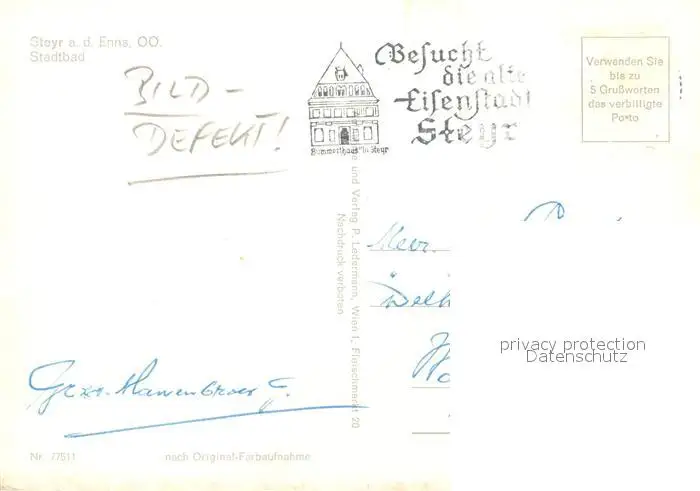 Steyr a. d. Enns, OÖ.
Stadtbad
BILD-
DEFEKT!
Besucht
die alte
Eisenstadt
Steyr
Bummerlhaus in Steyr
Verwenden Sie
bis zu
5 Grußworten
das verbilligte
Porto
e und Verlag P. Ledermann, Wien I., Fleischmarkt 20
Nachdruck verboten
privacy protection
Datenschutz
Nr. 77511
nach Original-Farbaufnahme